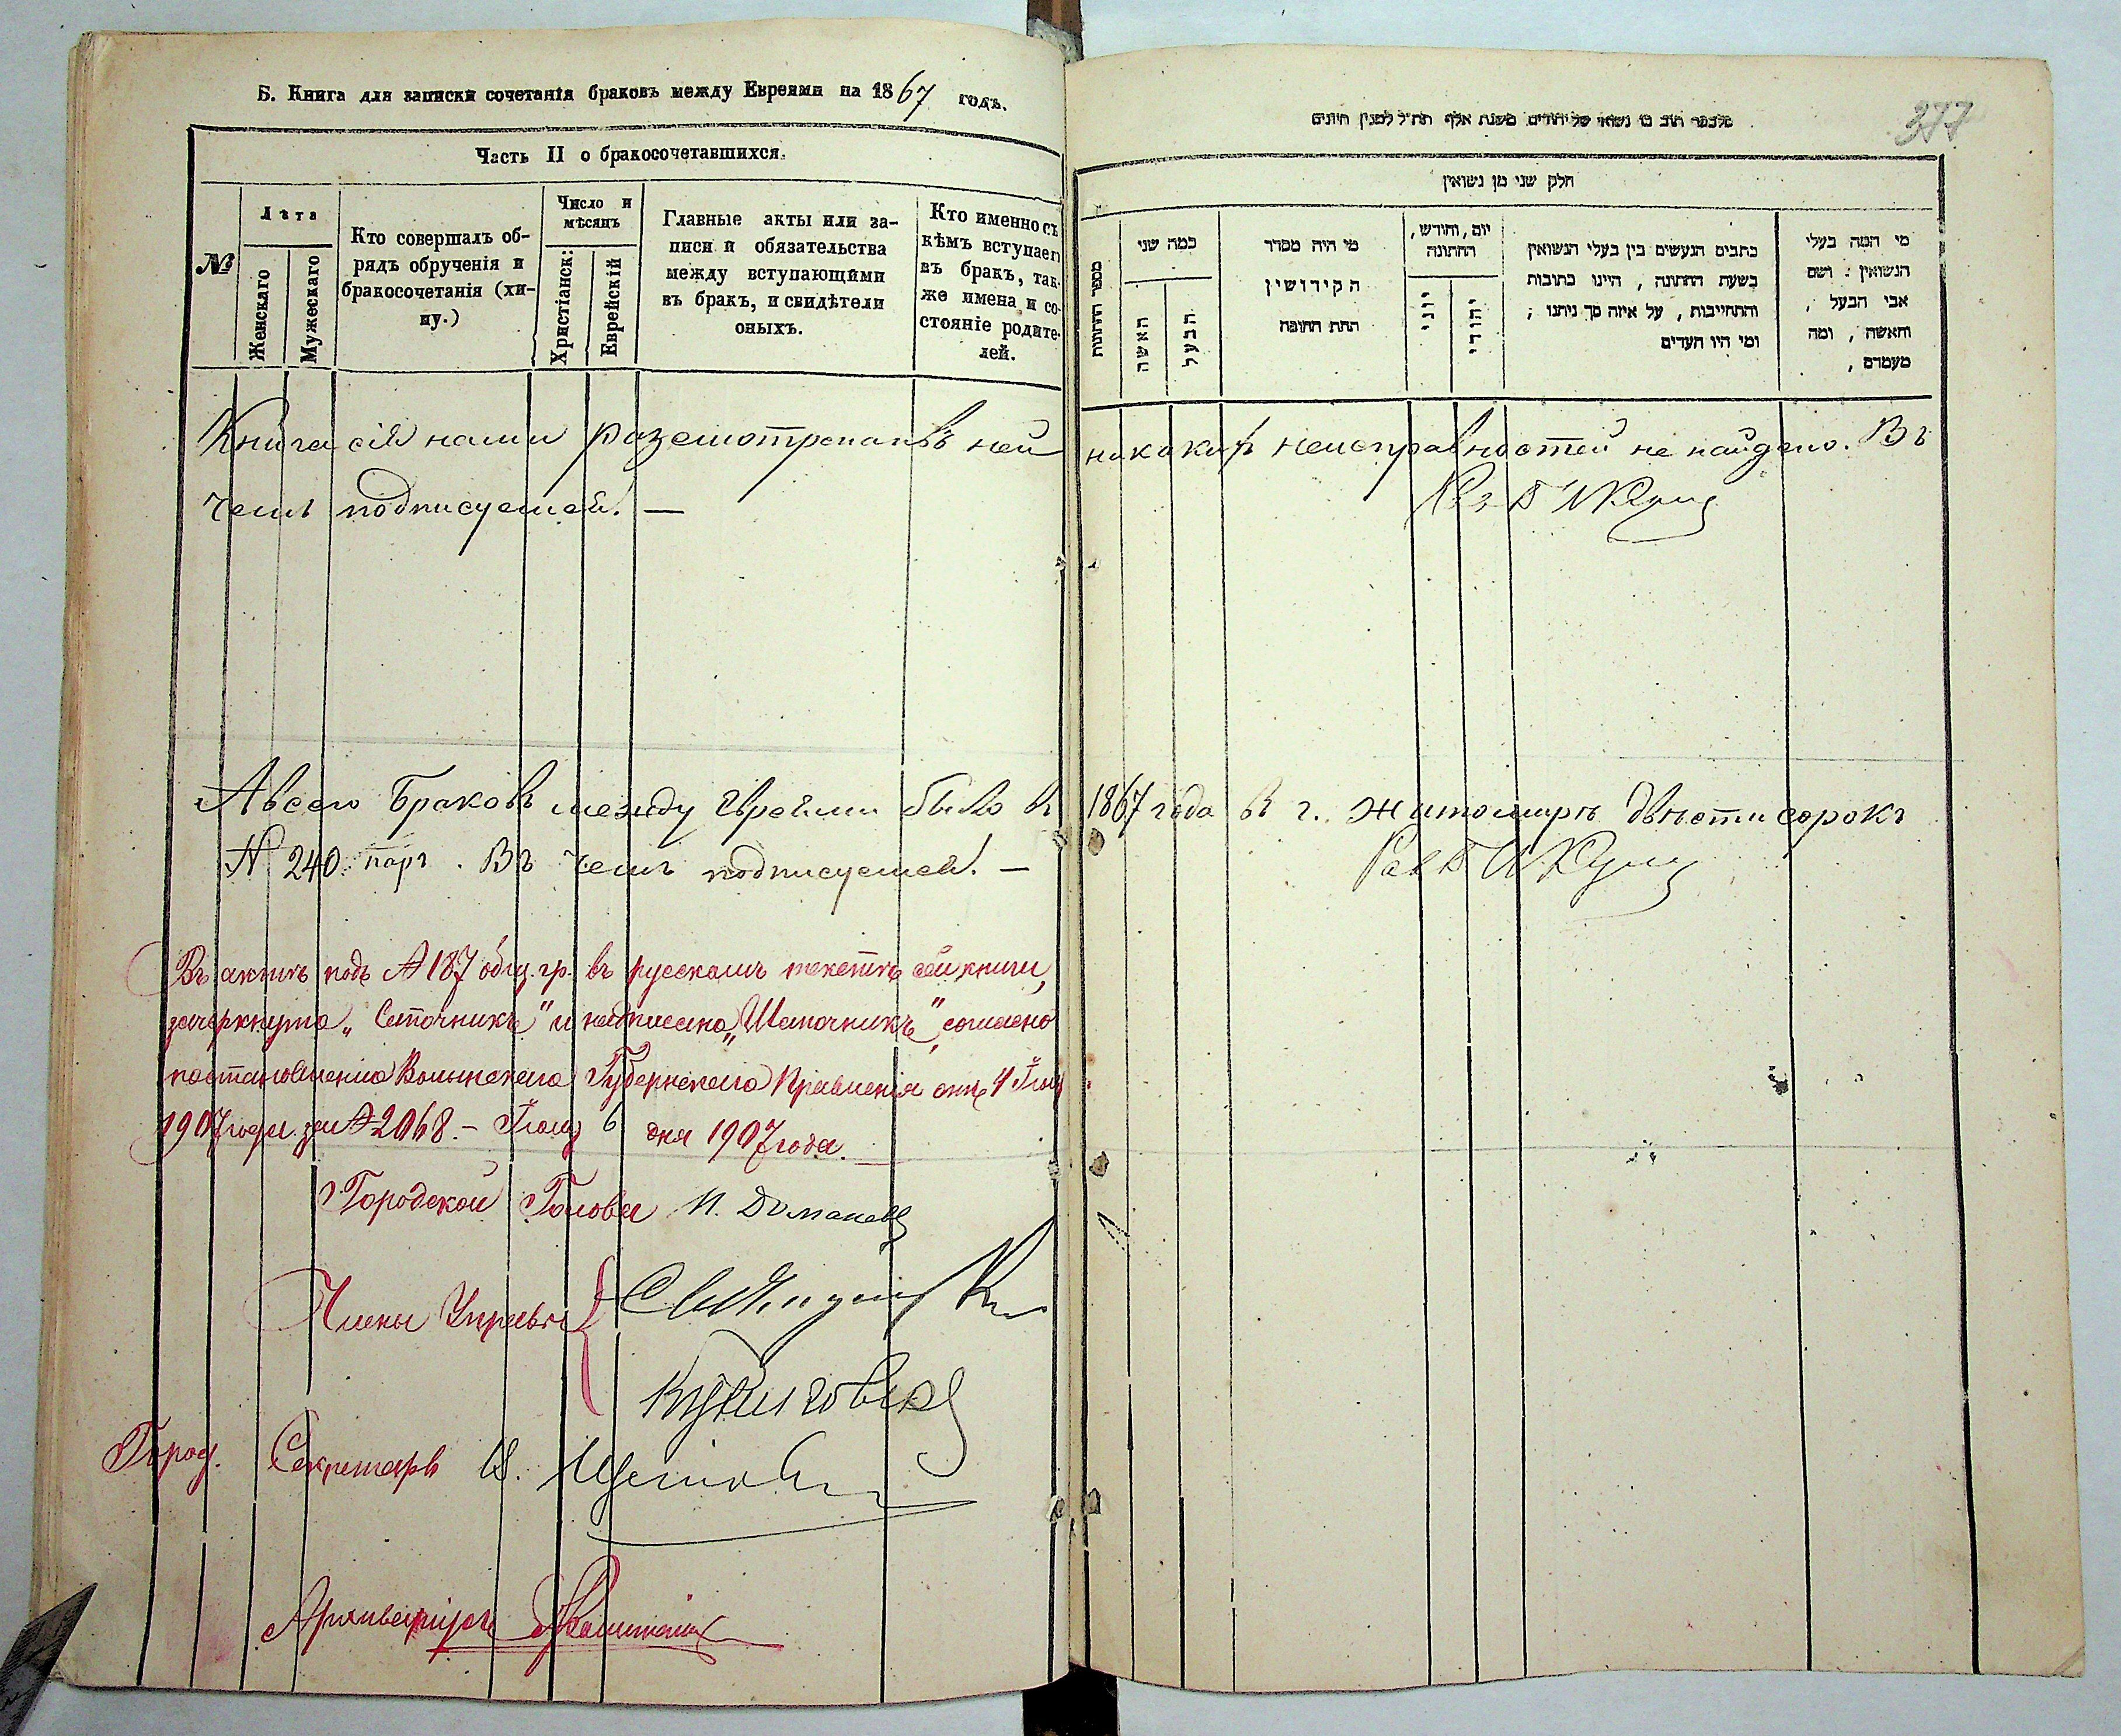 Б. Книга для записки сочетанія браковъ между Евреями на 1867 годъ.
Часть II о бракосочетавшихся.
№
Лѣта
Женскаго
Мужескаго
Кто совершалъ об-
рядъ обрученія и
бракосочетанія (хи-
пу.)
Число и
мѣсяцъ
Христіанск:
Еврейскій
Главные акты или за-
писи и обязательства
между вступающими
въ бракъ, и свидѣтели
оныхъ.
Кто именно съ
кѣмъ вступаетъ
въ бракъ, так-
же имена и со-
стояніе родите-
лей.
377
חלק שני מן נשואין
מספר החתונות
כמה שני
האשה
הבעל
מי היה מסדר
הקידושין
תחת החופה
יום, וחודש,
החתונה
יוני
יהודי
כתבים הנעשים בין בעלי הנשואין
בשעת החתונה, היינו כתובות
והתחייבות, על איזה סך ניתנו;
ומי היו העדים
מי המה בעלי
הנשואין: ושם
אבי הבעל,
והאשה, ומה
מעמדם,
Книга сія нами разсмотрена въ ней никакихъ неисправностей не найдено. Въ
чемъ подписуемся. —
А всего Браковъ между Евреями было въ 1867 года въ г. Житомирѣ двѣсти сорокъ
№ 240 паръ. Въ чемъ подписуемся. —
Въ актѣ подъ № 187 общ. гр. въ русскомъ текстѣ сей книги,
зачеркнуто „Сѣточникъ" и надписано „Шапочникъ", согласно
постановленію Волынскаго Губернскаго Правленія отъ 4
1907 года за № 2068. — 6 дня 1907 года.
Городской Голова И.
Члены Управы
Город. Секретарь
Архиваріусъ